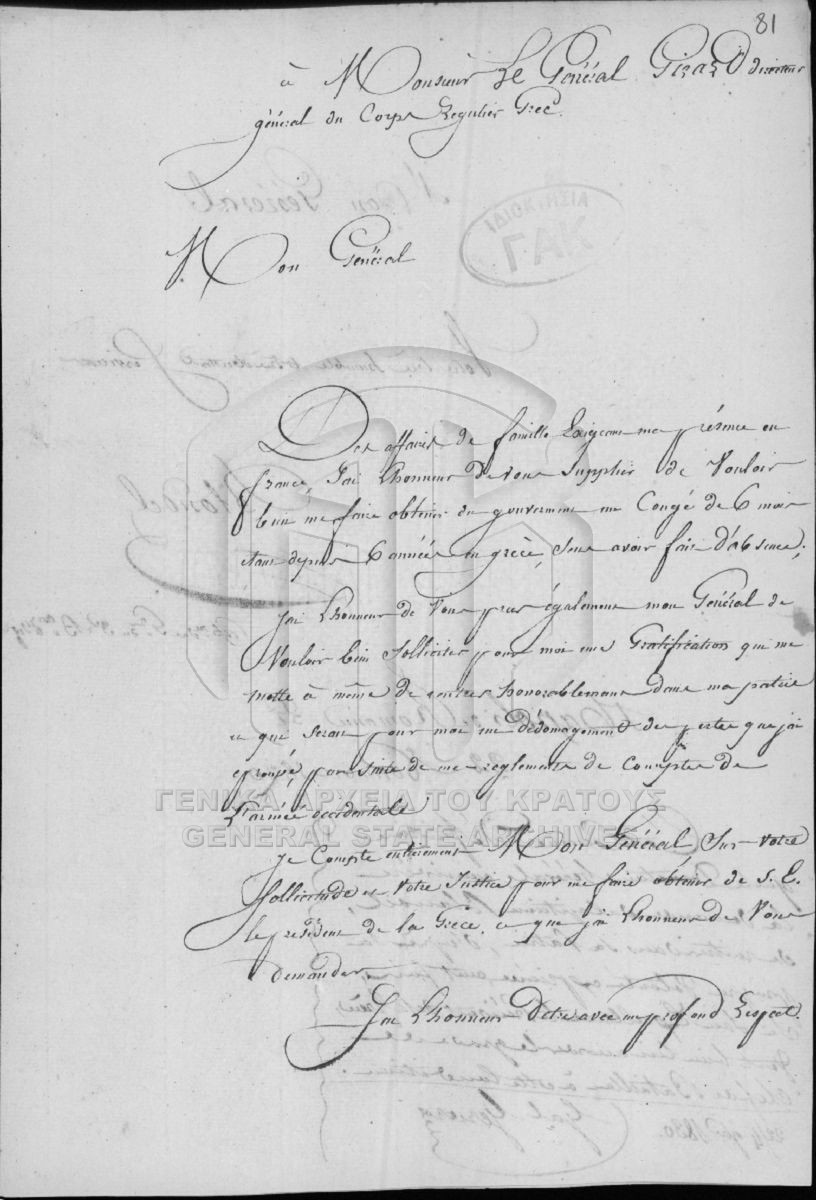 81
à Monsieur Le Général Girard directeur
général du Corps Regulier Grec.
ΙΔΙΟΚΤΗΣΙΑ
ΓΑΚ
Mon Général
Des affaires de famille Exigeant ma présence en
france, J'ai L'honneur de vous Supplier de Vouloir
bien me faire obtenir du gouvernement un Congé de 6 mois
etant depuis 6 années en grèce, sans avoir fait d'absence;
J'ai L'honneur de Vous prier également mon Général de
Vouloir bien Solliciter pour moi une Gratification qui me
mette à même de rentrer honorablement dans ma patrie
ce que serait pour moi un dédomagement des pertes que j'ai
eprouvé, par suite de mes reglements de Comptes de
L'armée occidentale.
ΓΕΝΙΚΑ ΑΡΧΕΙΑ ΤΟΥ ΚΡΑΤΟΥΣ
GENERAL STATE ARCHIVES
Je Compte entièrement Mon Général Sur votre
Sollicitude et Votre Justice pour me faire obtenir de S. E.
le président de la Grèce, ce que j'ai L'honneur de Vous
demander.
J'ai L'honneur D'etre avec un profond Respect.